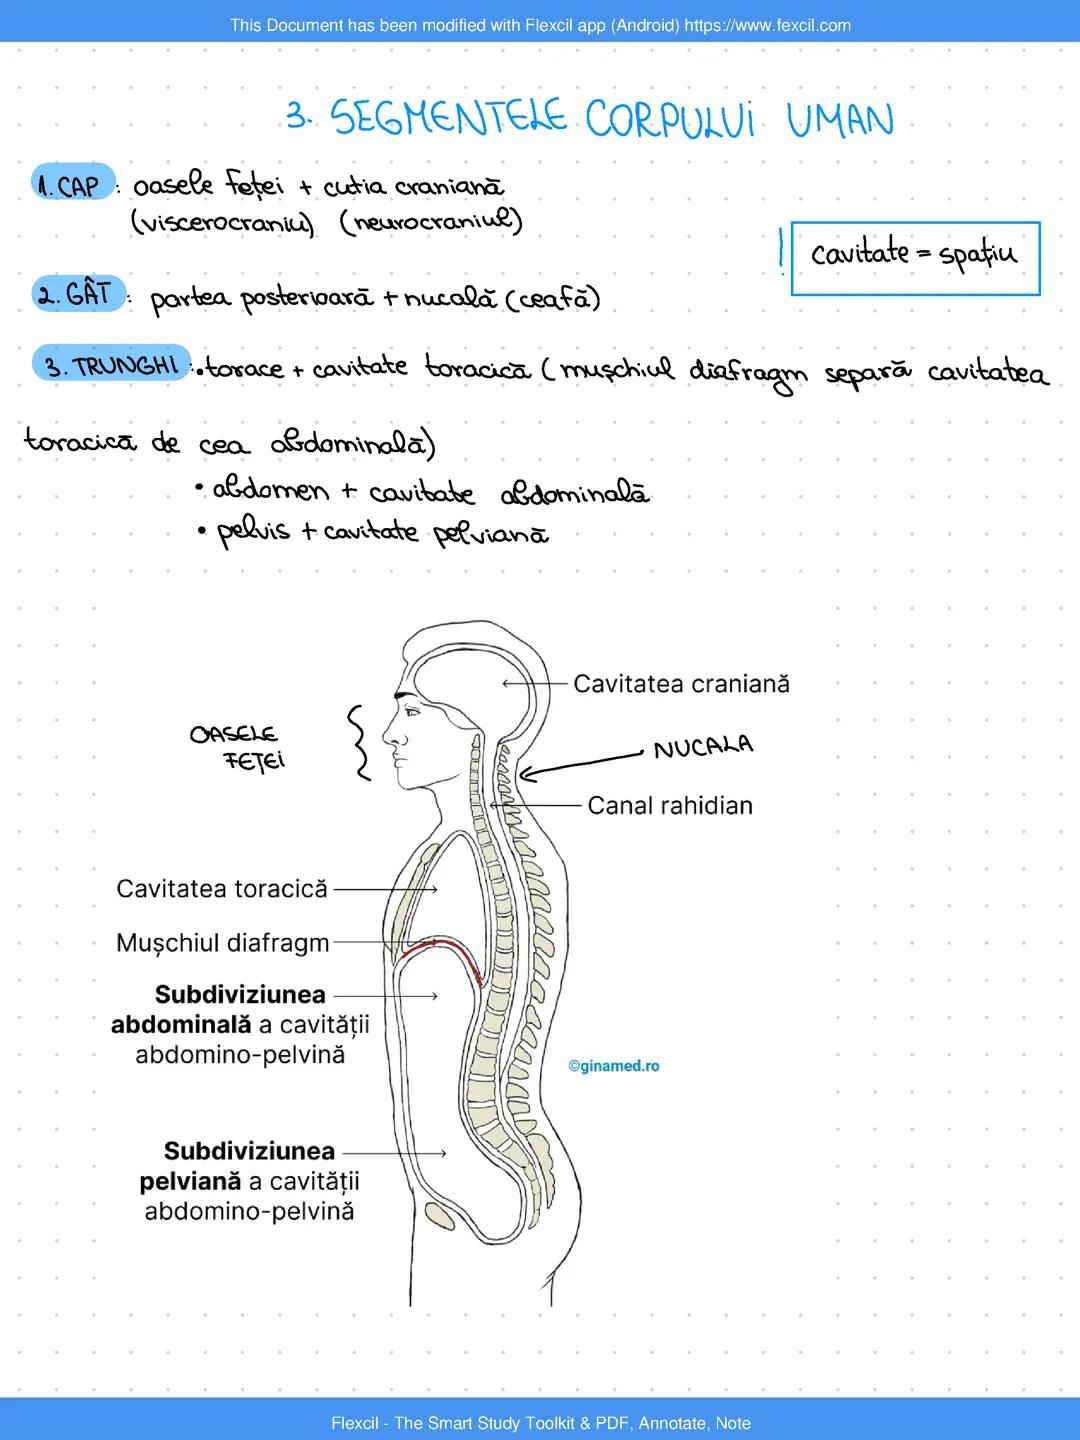 This Document has been modified with Flexcil app (Android) https://www.fexcil.com
3. SEGMENTELE CORPULUI UMAN
1. CAP : oasele feței + cutia craniană
(viscerocraniu) (neurocraniul)
! cavitate = spațiu
2. GÂT : partea posterioară + nucală (ceafă)
3. TRUNGHI : • torace + cavitate toracică (mușchiul diafragm separă cavitatea
toracică de cea abdominală)
• abdomen + cavitate abdominală
• pelvis + cavitate pelviană
Cavitatea craniană
OASELE
FEȚEI
NUCALA
Canal rahidian
Cavitatea toracică
Mușchiul diafragm
Subdiviziunea
abdominală a cavității
abdomino-pelvină
©ginamed.ro
Subdiviziunea
pelviană a cavității
abdomino-pelvină
Flexcil - The Smart Study Toolkit & PDF, Annotate, Note